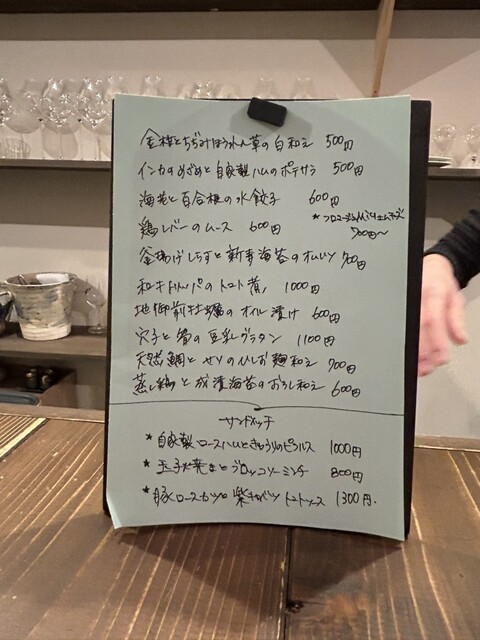 金柑とちぢみほうれん草の白和え 500円
インカのめざめと自家製ハムのポテサラ 500円
海老と百合根の水餃子 600円
鶏レバーのムース 600円
700円〜
釜揚げしらすと新芽海苔のオムレツ 900円
和牛トリッパのトマト煮 1000円
地御前牡蠣のオイル漬け 600円
穴子と筍の豆乳グラタン 1100円
天然鯛とせりのひしお麹和え 700円
蒸し鶏と成清海苔のおろし和え 600円
サンドイッチ
*自家製ロースハムときゅうりのピクルス 1000円
*玉子焼きとブロッコリーミンチ 800円
*豚ロースカツ 紫キャベツ トマトソース 1300円.